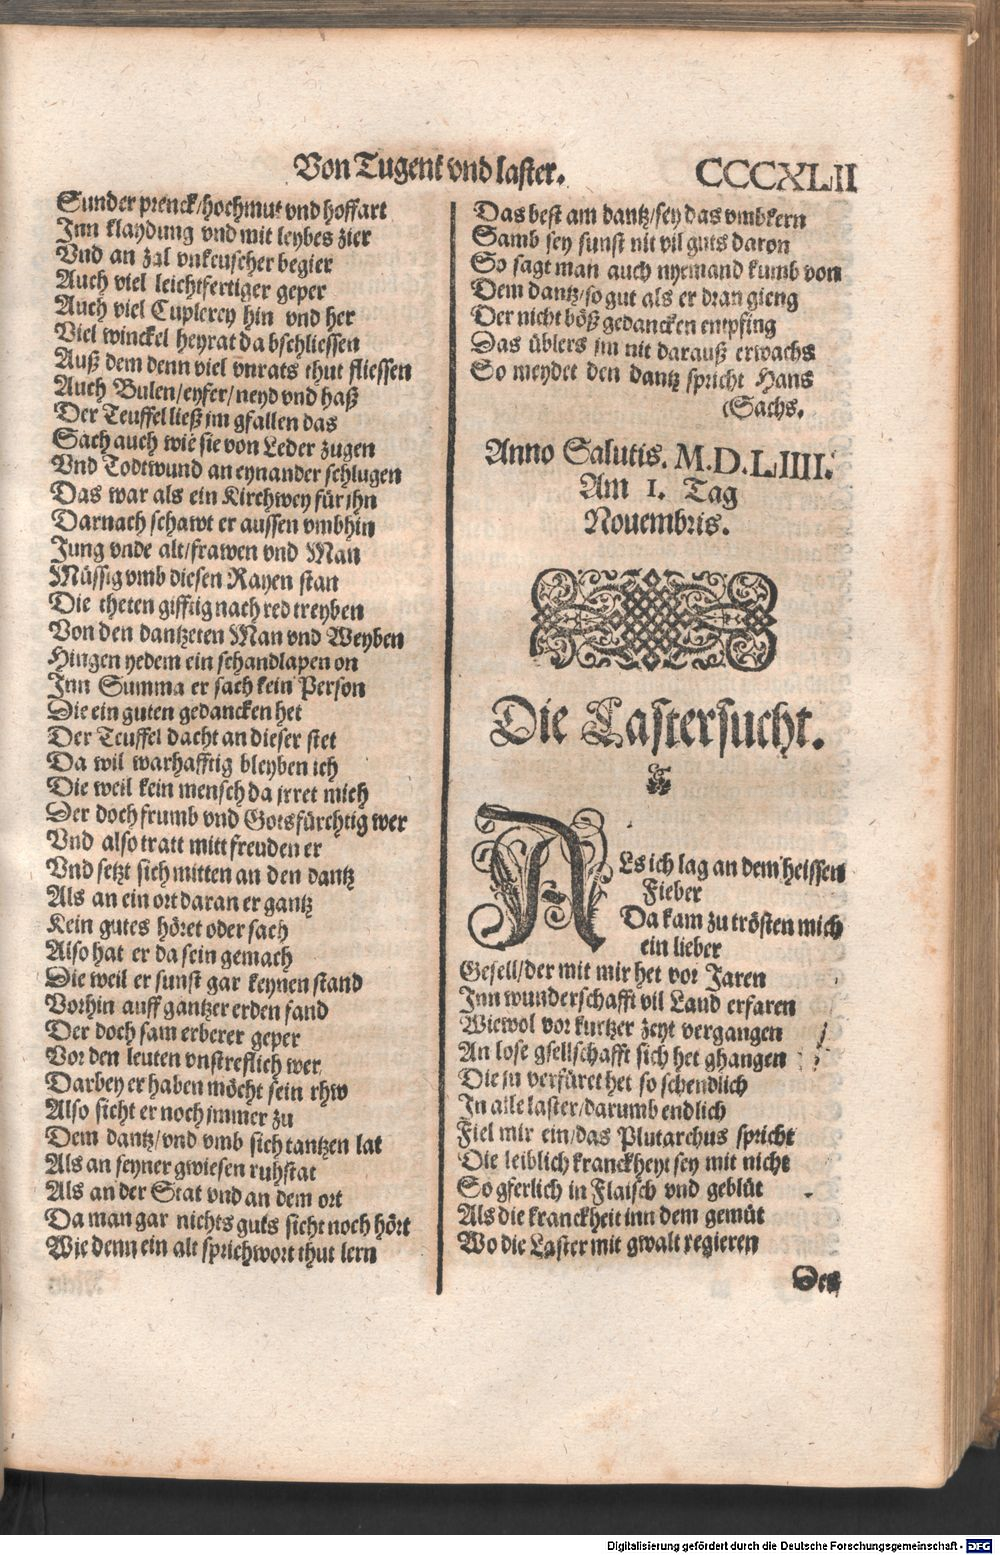 Von Tugent vnd laster. CCCXLII
Sunder prenck/hochmut vnd hoffart
Inn klaydung vnd mit leybes zier
Vnd an zal vnkeuscher begier
Auch viel leichtfertiger geper
Auch viel Cuplerey hin vnd her
Viel winckel heyrat da bschliessen
Auß dem denn viel vnrats thut fliessen
Auch Bulen/eyfer/neyd vnd haß
Der Teuffel ließ im gfallen das
Sach auch wie sie von Leder zugen
Vnd Todtwund an eynander schlugen
Das war als ein Kirchwey für ihn
Darnach schawt er aussen vmbhin
Jung vnde alt/frawen vnd Man
Müssig vmb diesen Rayen stan
Die theten gifftig nach red treyben
Von den dantzeten Man vnd Weyben
Hingen yedem ein schandlapen on
Inn Summa er sach kein Person
Die ein guten gedancken het
Der Teuffel dacht an dieser stet
Da wil warhafftig bleyben ich
Die weil kein mensch da jrret mich
Der doch frumb vnd Gotsfürchtig wer
Vnd also tratt mitt freuden er
Vnd setzt sich mitten an den dantz
Als an ein ort daran er gantz
Kein gutes höret oder sach
Also hat er da sein gemach
Die weil er sunst gar keynen stand
Vorhin auff gantzer erden fand
Der doch sam erberer geper
Vor den leuten vnstreflich wer
Darbey er haben möcht sein rhw
Also sicht er noch immer zu
Dem dantz/vnd vmb sich tantzen lat
Als an seyner gwiesen ruhstat
Als an der Stat vnd an dem ort
Da man gar nichts guts sicht noch hört
Wie denn ein alt sprichwort thut lern
Das best am dantz/sey das vmbkern
Samb sey sunst nit vil guts daron
So sagt man auch nyemand kumb von
Dem dantz/so gut als er dran gieng
Der nicht böß gedancken entpfing
Das üblers im nit darauß erwachs
So meydet den dantz spricht Hans
(Sachs.
Anno Salutis. M.D.LIIII.
Am 1. Tag
Nouembris.
Die Lastersucht.
ALs ich lag an dem heissen
Fieber
Da kam zu trösten mich
ein lieber
Gesell/der mit mir het vor Jaren
Inn wunderschafft vil Land erfaren
Wiewol vor kurtzer zeyt vergangen
An lose gsellschafft sich het ghangen
Die in verfüret het so schendlich
In alle laster/darumb endlich
Fiel mir ein/das Plutarchus spricht
Die leiblich kranckheyt sey mit nicht
So gferlich in Flaisch vnd geblüt
Als die kranckheit inn dem gemüt
Wo die Laster mit gwalt regieren
Des
Digitalisierung gefördert durch die Deutsche Forschungsgemeinschaft - DFG